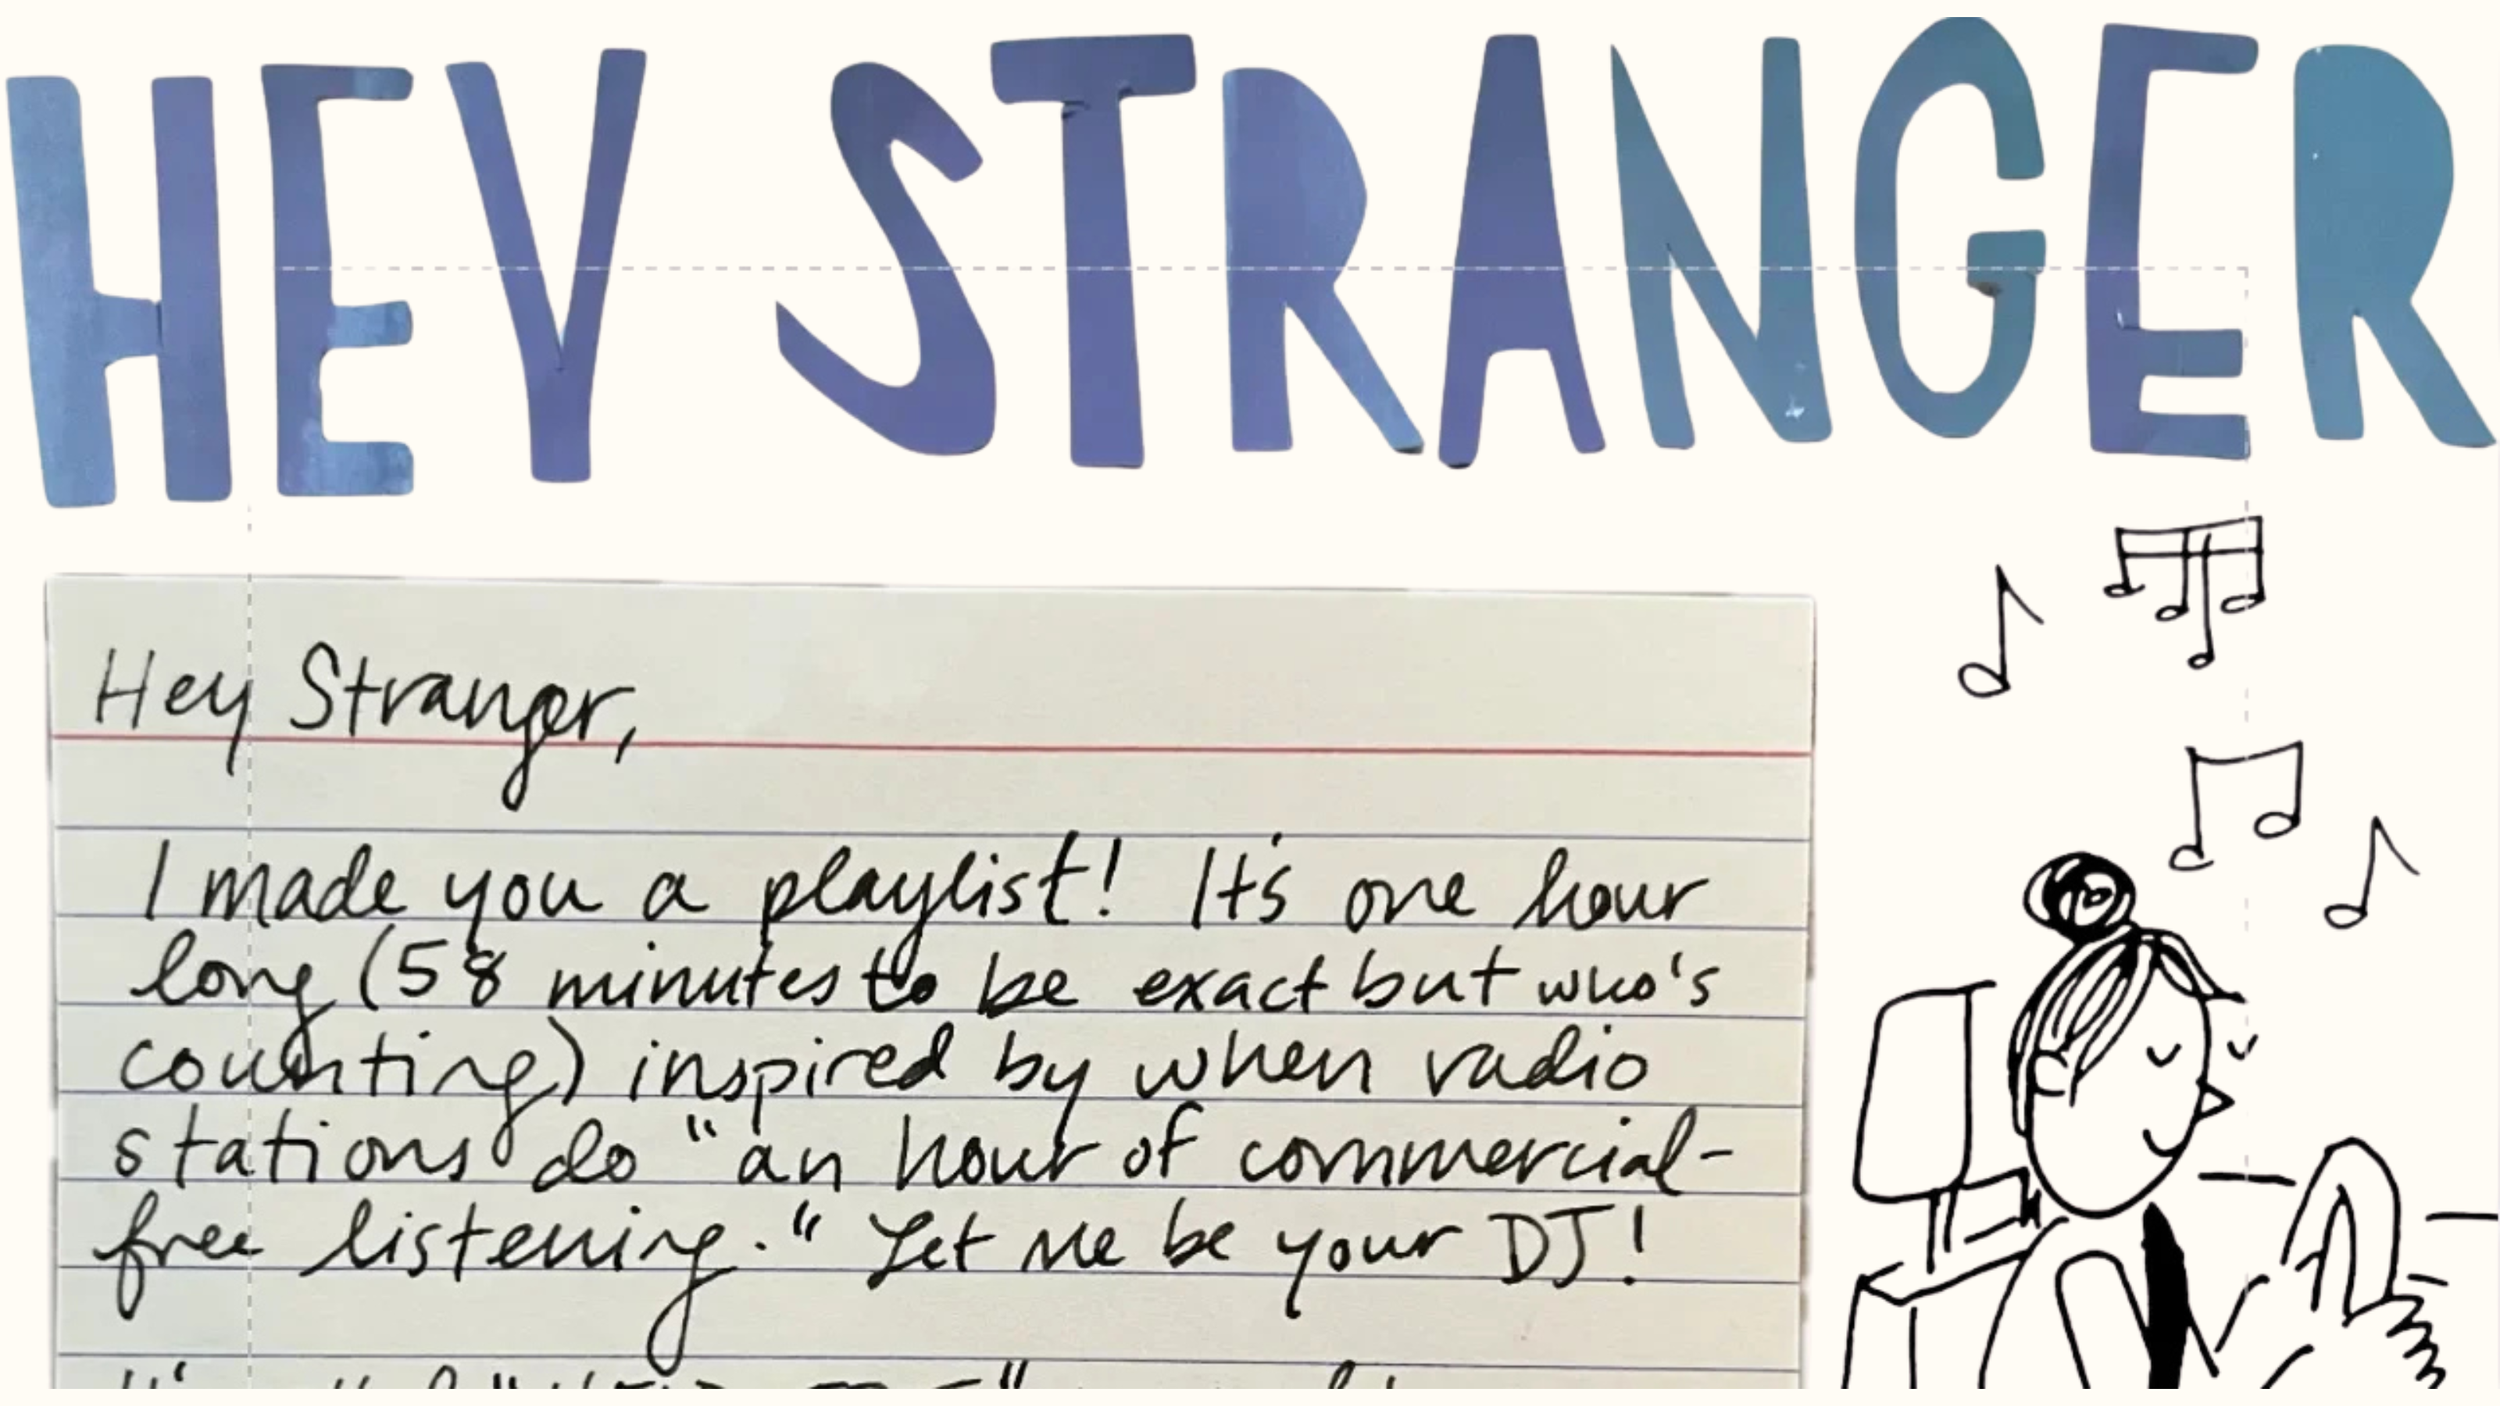 HEY STRANGER
Hey Stranger,
I made you a playlist! It's one hour
long (58 minutes to be exact but who's
counting) inspired by when radio
stations do "an hour of commercial-
free listening." Let me be your DJ!